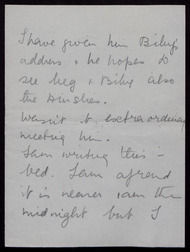 I have given him Billy's
address & he hopes to
see Meg & Billy also
the
Wasn't it extraordinary
meeting him.
I am writing this in
bed. I am afraid
it is nearer 1am than
midnight but I